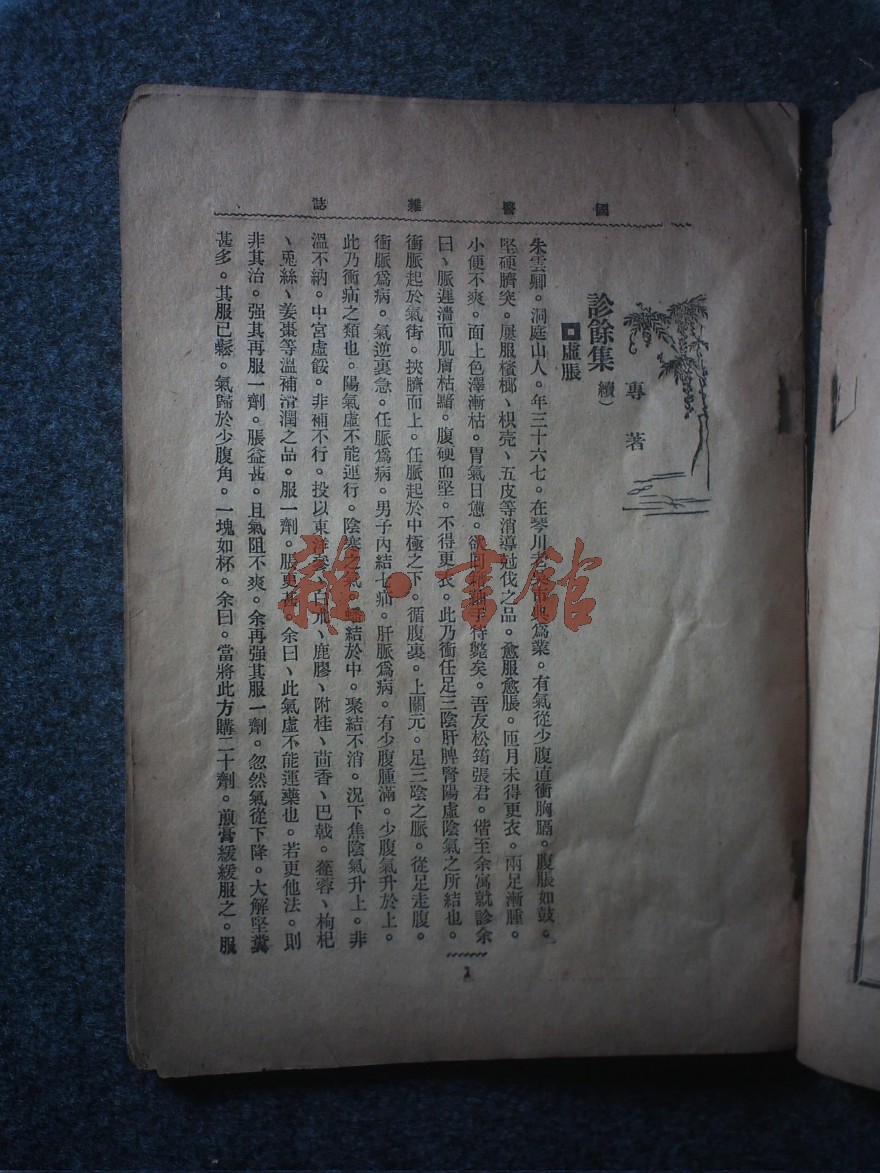 國醫雜誌
專著
診餘集
續)
虛脹
朱雲卿。洞庭山人。年三十六七。在琴川老吳市典爲業。有氣從少腹直衝胸膈。腹脹如鼓。
堅硬臍突。屢服檳榔、枳壳、五皮等消導尅伐之品。愈服愈脹。匝月未得更衣。兩足漸腫。
小便不爽。面上色澤漸枯。胃氣日憊。手待斃矣。吾友松筠張君。偕至余寓就診余
曰、脈遲濇而肌膚枯黯。腹硬而堅。不得更衣。此乃衝任足三陰肝脾腎陽虛陰氣之所結也。
衝脈起於氣街。挾臍而上。任脈起於中極之下。循腹裏。上關元。足三陰之脈。從足走腹。
衝脈爲病。氣逆裏急。任脈爲病。男子內結七疝。肝脈爲病。有少腹腫滿。少腹氣升於上。
此乃衝疝之類也。陽氣虛不能運行。陰寒之氣。蟠結於中。聚結不消。況下焦陰氣升上。非
溫不納。中宮虛餒。非補不行。投以東洋參、白朮、鹿膠、附桂、茴香、巴戟。蓯蓉、枸杞
、兎絲、姜棗等溫補滑潤之品。服一劑。脹更甚。余曰、此氣虛不能運藥也。若更他法。則
非其治。强其再服一劑。脹益甚。且氣阻不爽。余再强其服一劑。忽然氣從下降。大解堅糞
甚多。其服已鬆。氣歸於少腹角。一塊如杯。余曰。當將此方購二十劑。煎膏緩緩服之。服
1
雜·書館